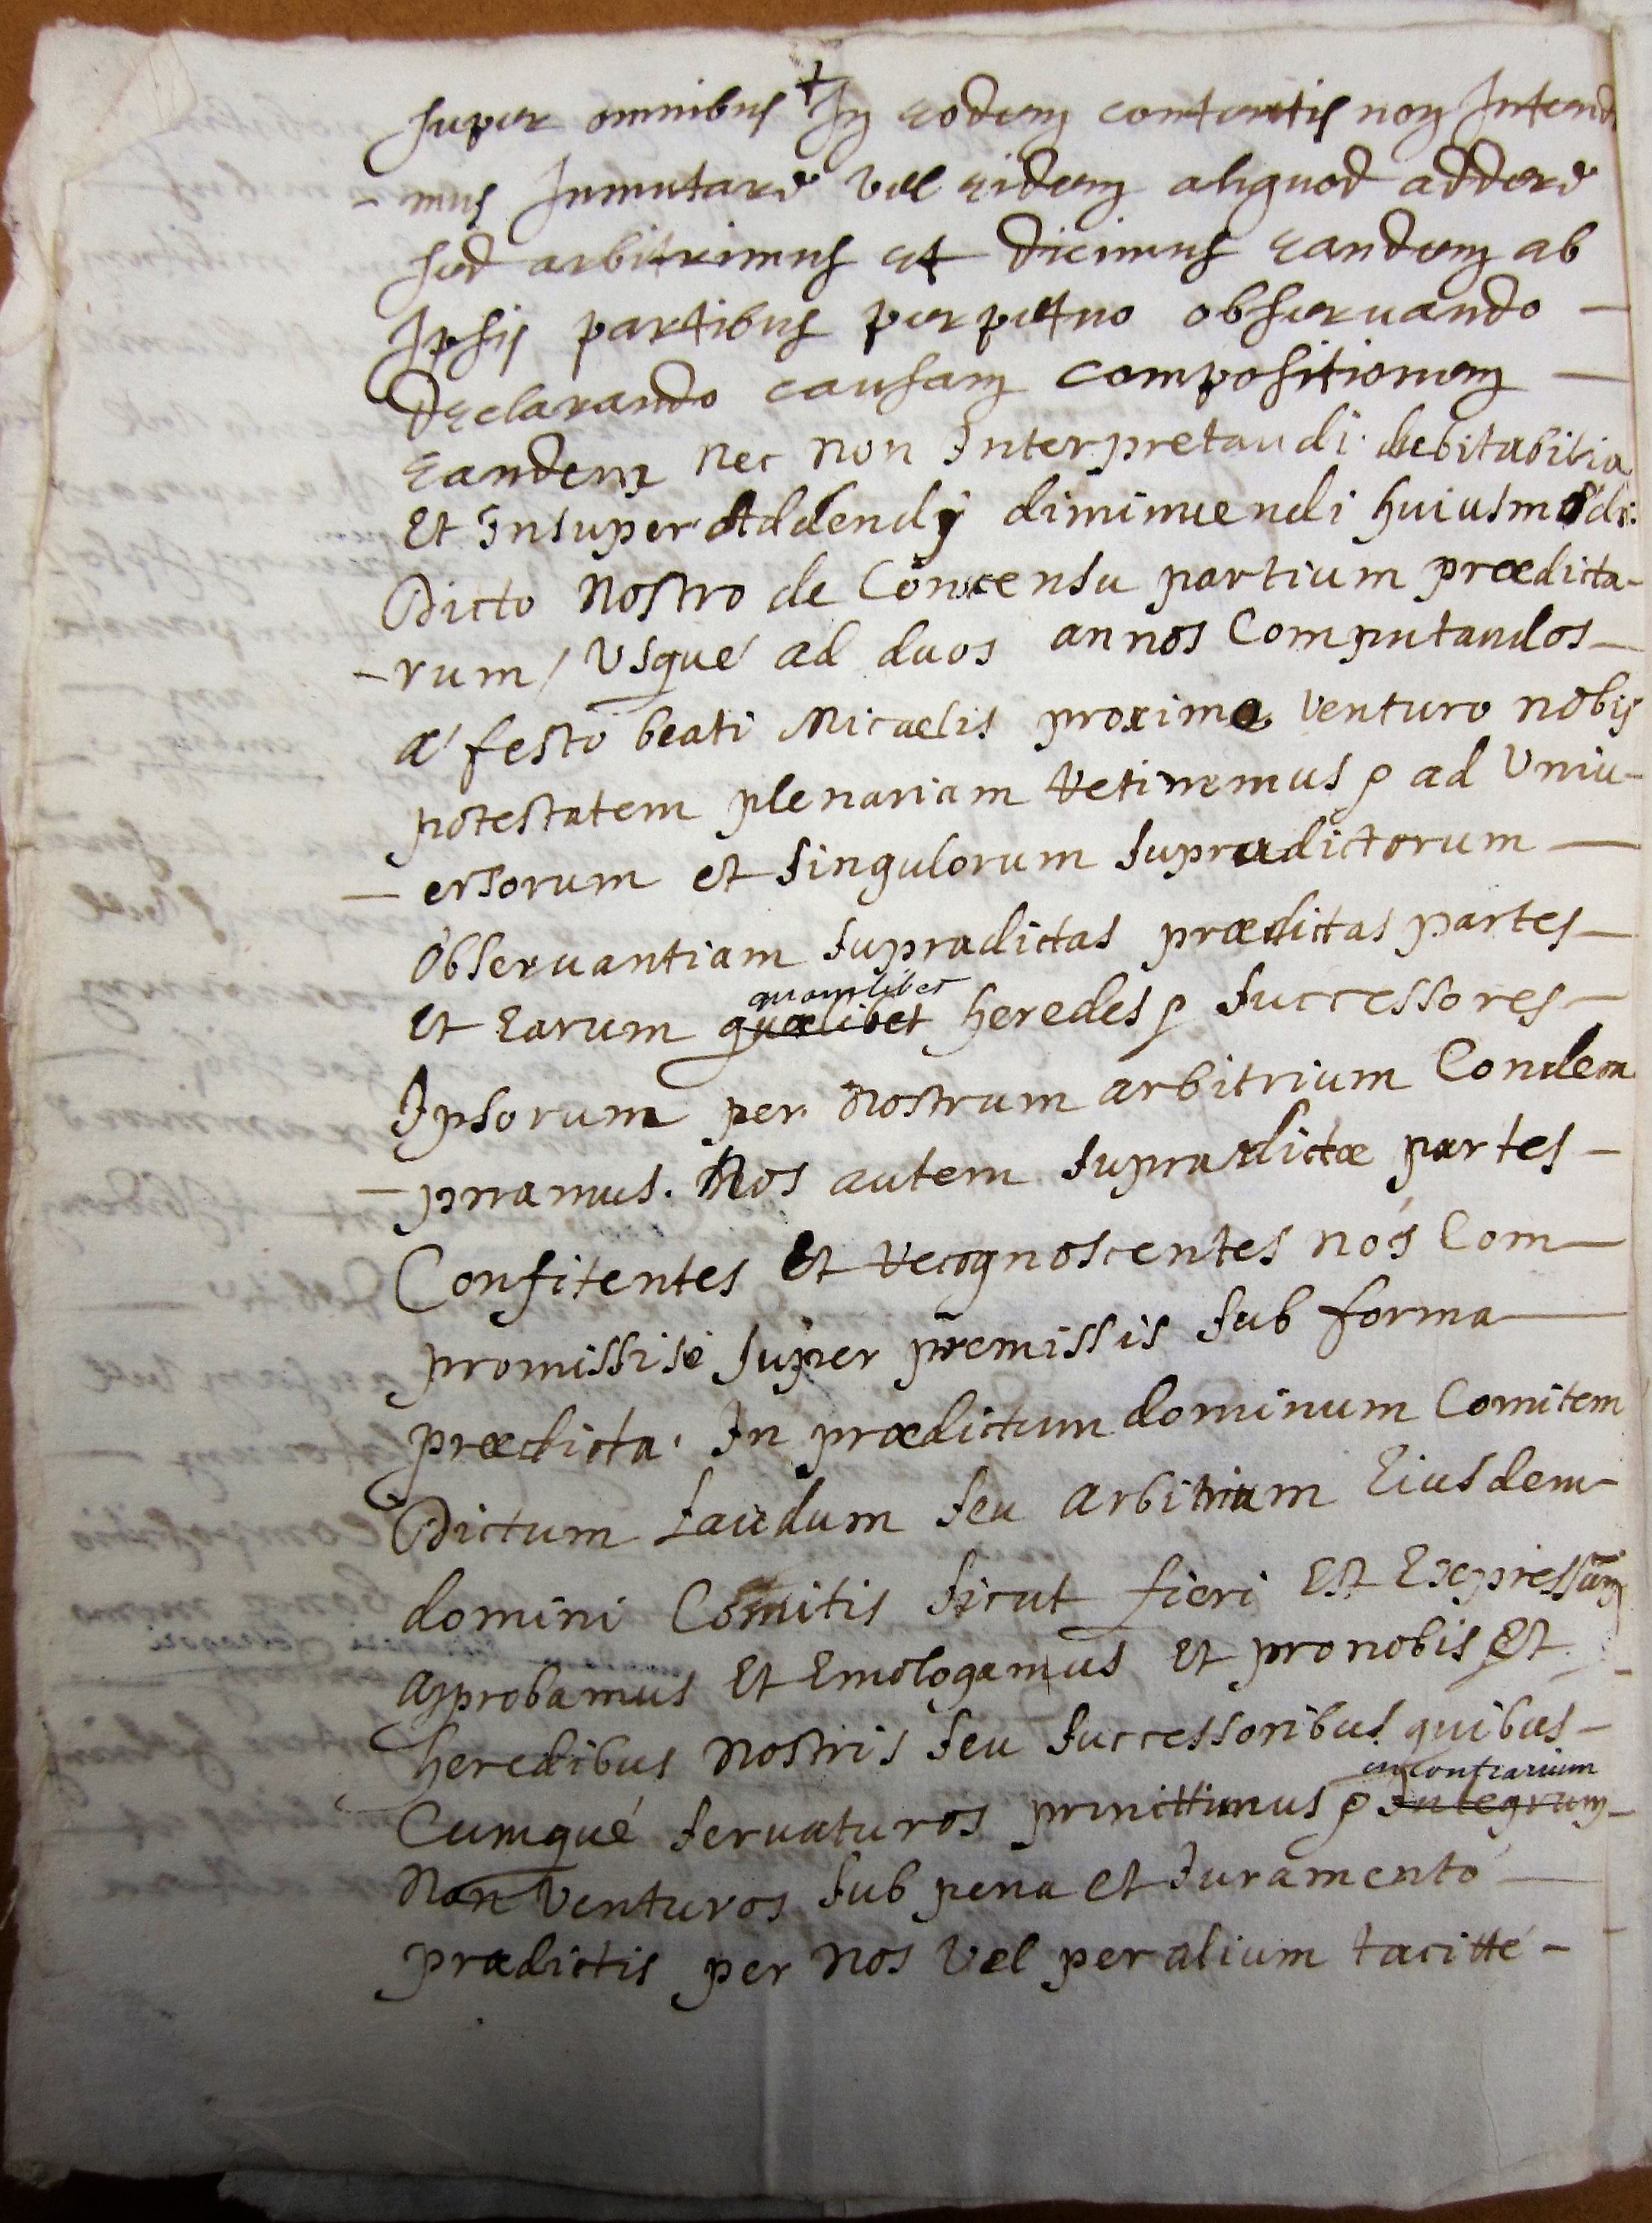 super omnibus + In eodem contentis non Intendi
- mus Inmutare vel eidem aliquod addere
sed arbitrimus et dicimus eandem ab
Ipsis partibus perpetuo obseruando -
Declarando causam compositionem -
eandem nec non Interpretandi debitabilia
Et Insuper Addendy diminuendi huiusmodi
Dicto Nostro de Concensu partium prædicta-
-rum / Vsque ad duos annos Computandos -
a festo beati Micaelis proximo venturo nobis
potestatem plenariam retinemus & ad Vniu-
- ersorum et singulorum supradictorum -
Obseruantiam supradictas prædictas partes -
quamlibet
Et Earum quælibet heredes & successores -
Ipsorum per Nostrum arbitrium Condem
- pnamus. Nos autem supradictæ partes -
Confitentes Et recognoscentes nos Com -
promissise super premissis sub forma -
prædicta. In prædictum dominum Comitem
Dictum Laudum seu arbitrium Eiusdem -
domini Comitis sicut fieri Est Expressum
approbamus Et Emologamus Et pro nobis Et -
heredibus Nostris seu successoribus quibus -
in contrarium
Cumqué seruaturos & Integrum -
Non Venturos sub pena et Juramento -
prædictis per Nos Vel per alium tacitté -